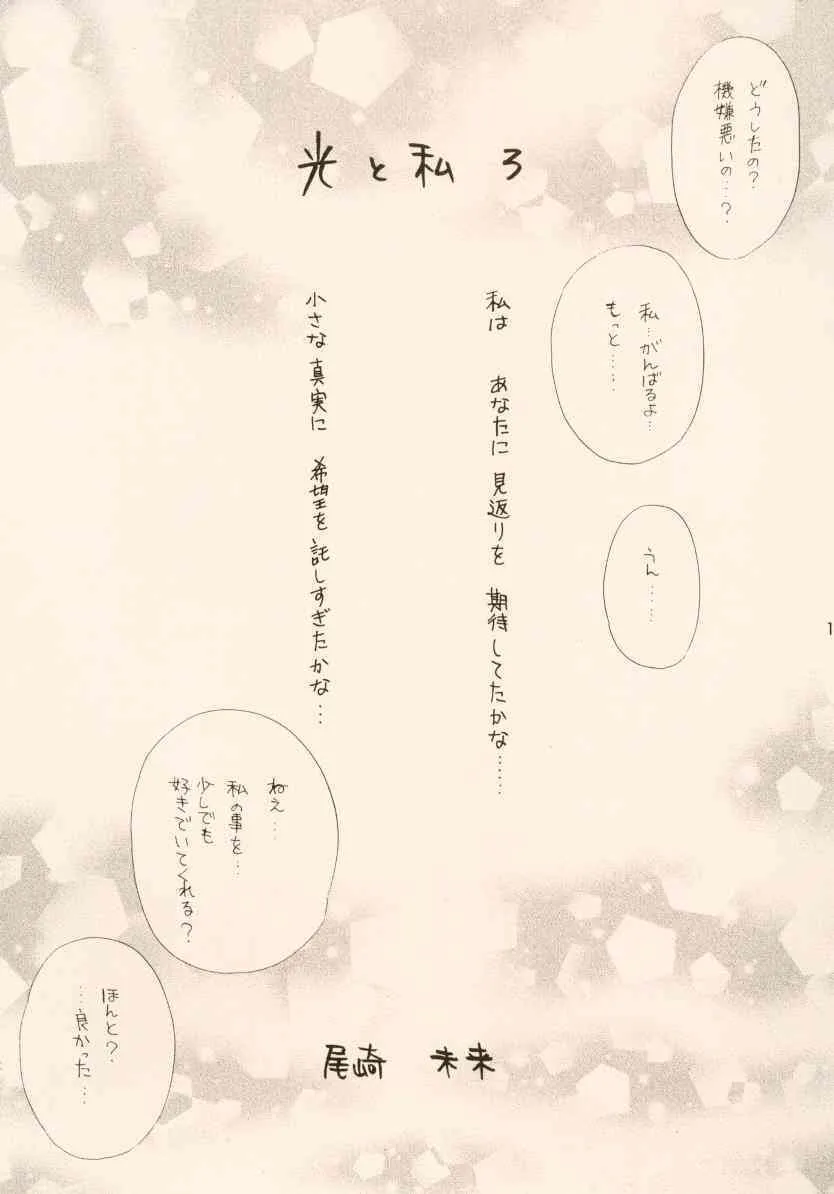 どうしたの?
機嫌悪いの…?
光と私 3
私…がんばるよ…
もっと……
私は あなたに 見返りを 期待してたかな……
うん……
小さな 真実に 希望を 託しすぎたかな…
ねえ…
私の事を…
少しでも
好きでいてくれる?
ほんと?
…良かった…
尾崎 未来
1